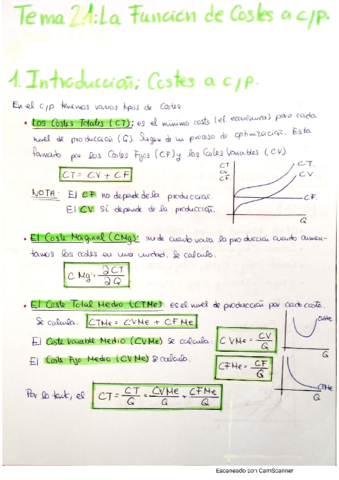 Tema 2.1: La Función de Costes a c/p.
1. Introducción; Costes a c/p.
En el c/p tenemos varios tipos de Costes:
• Los Costes Totales (CT); es el mínimo coste (ef. económica) para cada
nivel de producción (Q). Surgen de un proceso de optimización. Esta
formado por los Costes Fijos (CF) y los Costes Variables (CV)
CT = CV + CF
CT
CV
CF
CT.
CV.
CF.
Q
NOTA: El CF no depende de la producción.
El CV Si depende de la producción.
• El Coste Marginal (CMg): mide cuando varía la producción cuando aumen-
tamos los costes en una unidad. Se calcula:
CMg = ∂CT / ∂Q
• El Coste Total Medio (CTMe): es el nivel de producción por cada coste.
Se calcula: CTMe = CVMe + CFMe
El Coste Variable Medio (CVMe) se calcula: CVMe = CV / Q
El Coste Fijo Medio (CFMe) se calcula: CFMe = CF / Q
Q
CTMe
Q
Por lo tanto, el CT = CT / Q = CVMe / Q + CFMe / Q
Escaneado con CamScanner